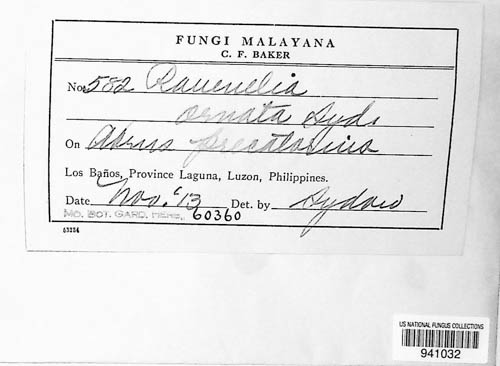 FUNGI MALAYANA
C. F. BAKER
No. 582 Ravenelia
ornata Syd.
On Abrus precatorius
Los Baños, Province Laguna, Luzon, Philippines.
Date Nov. '13 Det. by Sydow
MO. BOT. GARD. HERB. 60360
63254
US NATIONAL FUNGUS COLLECTIONS
941032